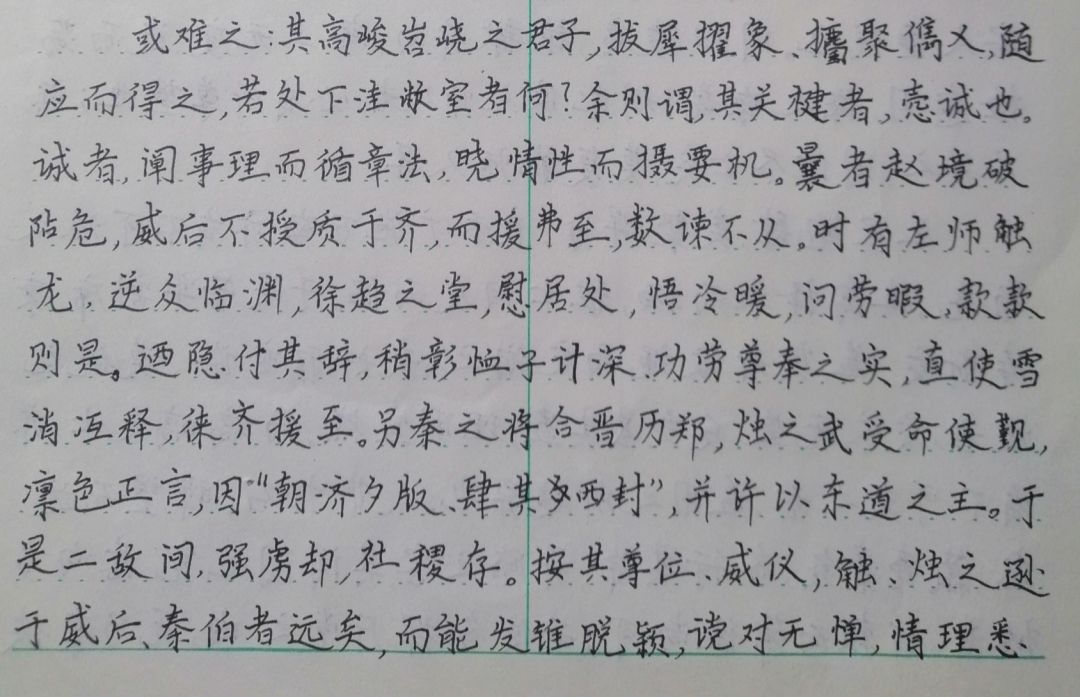 或难之:其高峻岧峣之君子,拔犀擢象、攟聚儁乂,随
应而得之,若处下洼敝室者何?余则谓,其关键者,悫诚也。
诚者,阐事理而循章法,晓情性而摄要机。曩者赵境破
阽危,威后不授质于齐,而援弗至,数谏不从。时有左师触
龙,逆众临渊,徐趋之堂,慰居处,悟冷暖,问劳暇,款款
则是。迺隐付其辞,稍彰恤子计深、功劳尊奉之实,直使雪
消冱释,徕齐援至。另秦之将合晋历郑,烛之武受命使觐,
凛色正言,因“朝济夕版、肆其西封”,并许以东道之主。于
是二敌间,强虏却,社稷存。按其尊位、威仪,触、烛之逊
于威后、秦伯者远矣,而能发锥脱颖,谠对无惮,情理悉